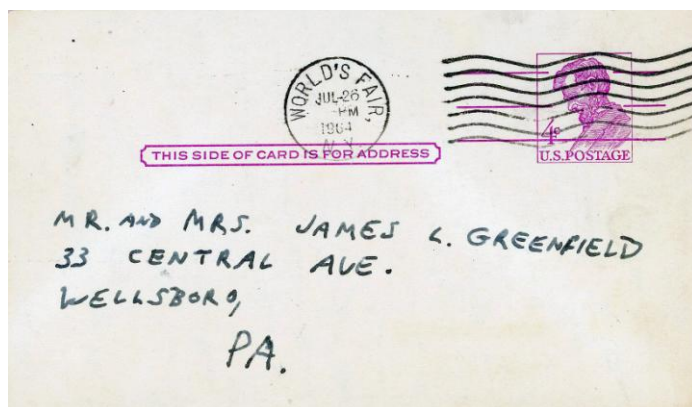 WORLD'S FAIR,
JUL 26
-PM
1964
N.Y.
4¢
U.S. POSTAGE
THIS SIDE OF CARD IS FOR ADDRESS
MR. AND MRS. JAMES L. GREENFIELD
33 CENTRAL AVE.
WELLSBORO,
PA.